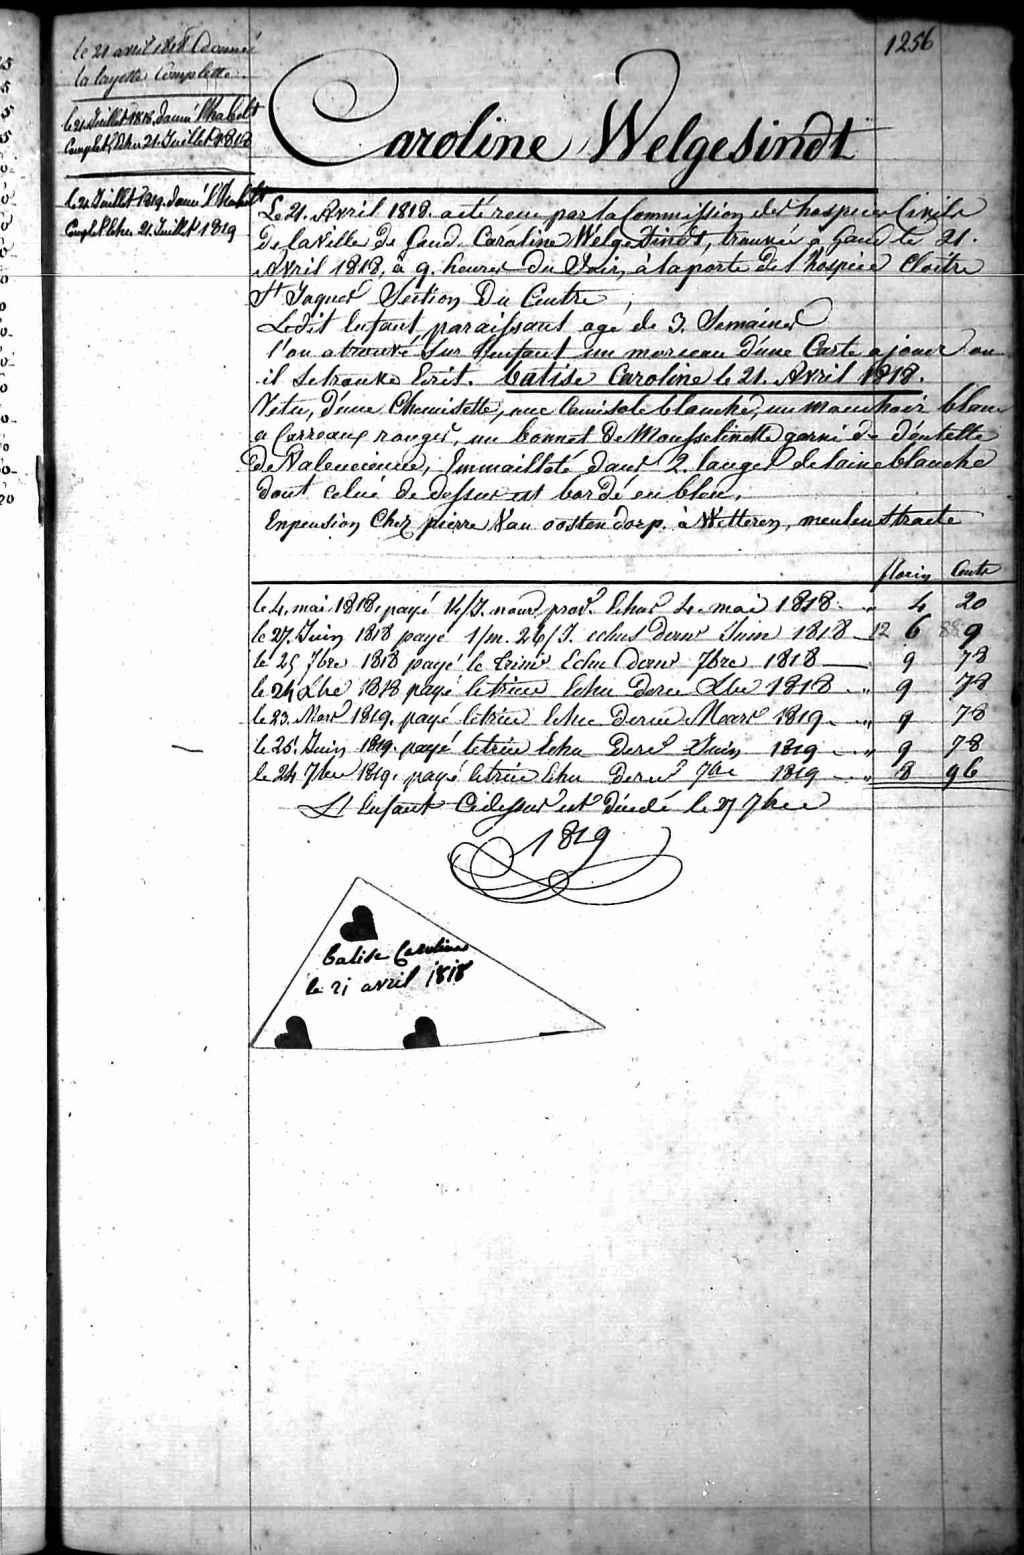 1256
le 21 avril 1818 donné
la layette Complette.
le 21 Juillet 1818. donné l'habilt
Complet, Echu 21. Juillet 1818
le 21 Juillet 1819. donné l'habilt
Complet Echu 21. Juillet 1819
Caroline Welgesindt
Le 21. Avril 1818. a été recu par la Commission des hospices Civils
de la Ville de Gand. Caroline Welgesindt, trouvée a Gand le 21.
Avril 1818. à 9. heures du Soir, à la porte de l'hospice Cloitre
St Jaques Section Du Centre,
Ledit Enfant paraissant agé de 3. Semaines
l'on a trouvé Sur l'enfant un morceau d'une Carte a jouer ou
il Se trouve Ecrit. batise Caroline le 21. Avril 1818.
Vetu, d'une Chemisette, une Camisole blanche, un mouchoir blanc
a Carreaux rouges, un bonnet De Mousselinette garni de d'entelle
de Valencienne, Emmailloté dans 2. langes de laine blanche
dont celui de dessus est bordé en bleu.
En pension Chez pierre Van oostendorp. à Wetteren, meulenstraete
florins Cents
le 4. mai 1818. payé 14/J. nour prov. Echus 4. mai 1818. " 4 20
le 27. Juin 1818 payé 1/m. 26/J. echus dernr Juin 1818 12 6 88 9
le 25 7bre 1818 payé le trimr Echu dernr 7bre 1818 — 9 78
le 24 Xbre 1818 payé le trim Echu Dernr Xbre 1818 " 9 78
le 23. Mars 1819. payé le trim Echu Dernr Mars 1819 " 9 78
le 26. Juin 1819. payé le trim Echu Dernr Juin 1819 " 9 78
le 24 7bre 1819. payé le trim Echu Dernr 7bre 1819 " 8 96
L'Enfant Cidessus est Décédé le 27 7bre
1819
batise Caroline
le 21 avril 1818